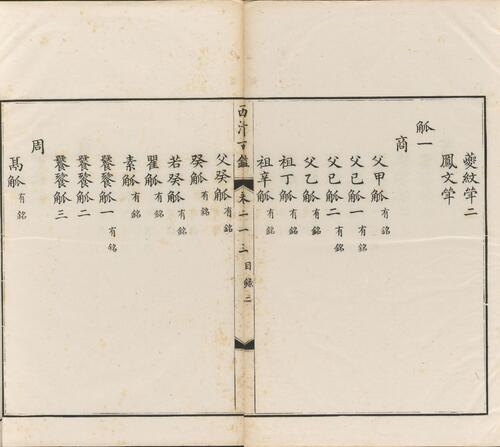 夔紋斝二
鳳文斝
觚一
商
父甲觚有銘
父己觚一有銘
父己觚二有銘
父乙觚有銘
祖丁觚有銘
祖辛觚有銘
西清古鑑 卷二十三 目錄 二
父癸觚有銘
癸觚有銘
若癸觚有銘
瞿觚有銘
素觚有銘
饕餮觚一有銘
饕餮觚二
饕餮觚三
周
觚有銘